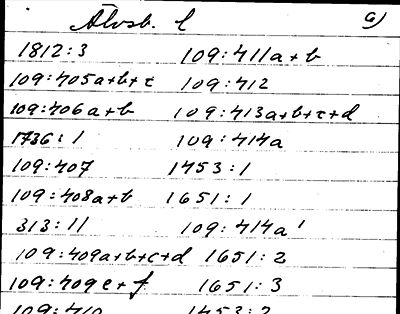 Älvsb. l a)
1812:3 109:411a+b
109:405a+b+c 109:412
109:406a+b 109:413a+b+c+d
1736:1 109:414a
109:407 1453:1
109:408a+b 1651:1
313:11 109:414a'
109:409a+b+c+d 1651:2
109:409e+f 1651:3
109:410 1453:2